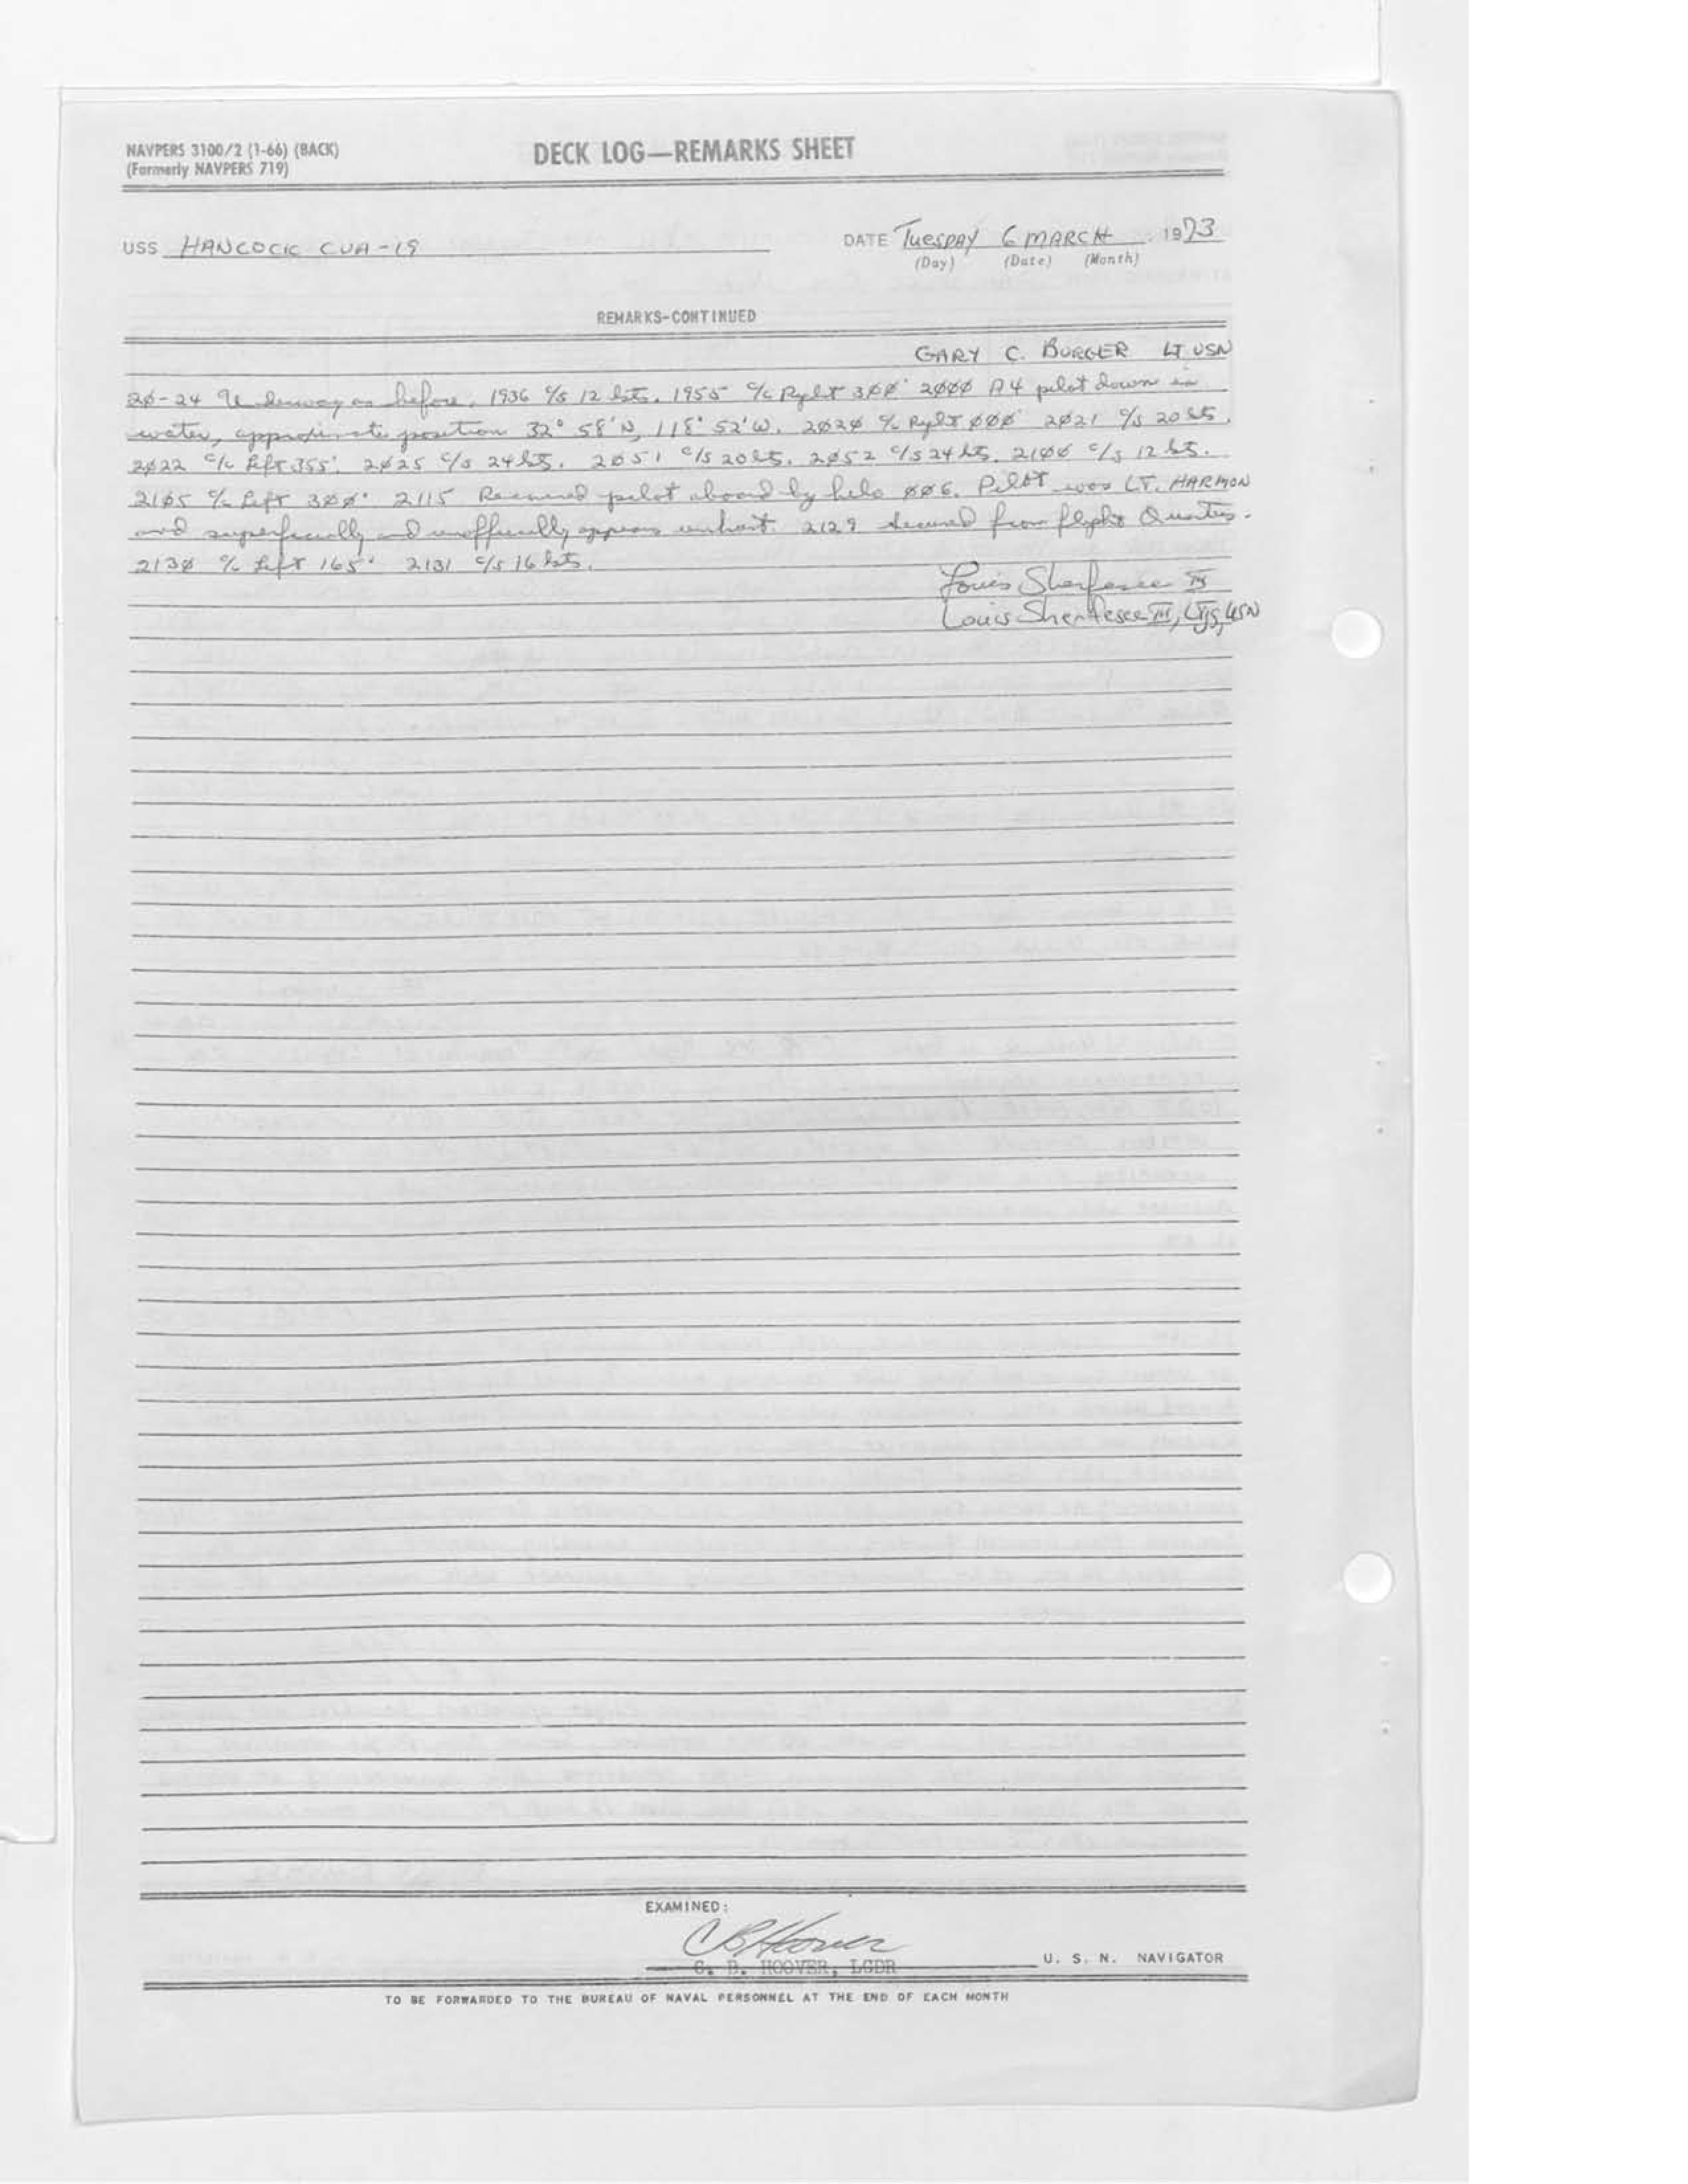 NAVPERS 3100/2 (1-66) (BACK)
(Formerly NAVPERS 719)
DECK LOG—REMARKS SHEET
USS HANCOCK CVA-19
DATE TUESDAY 6 MARCH 1973
(Day) (Date) (Month)
REMARKS-CONTINUED
GARY C. BURGER LT USN
2Ø-24 Underway as before. 1936 c/s 12 kts. 1955 c/c Right 3ØØ° 2ØØØ A4 pilot down in
water, approximate position 32° 58'N, 118° 52'W. 2Ø2Ø c/c Right ØØØ° 2Ø21 c/s 20 kts.
2Ø22 c/c Left 355°. 2Ø25 c/s 24 kts. 2Ø51 c/s 20 kts. 2Ø52 c/s 24 kts. 21ØØ c/s 12 kts.
21Ø5 c/c Left 3ØØ° 2115 Received pilot aboard by helo ØØ6. Pilot was LT. HARMON
and superficially and unofficially appears unhurt. 2129 Secured from flight Quarters.
213Ø c/c Left 165° 2131 c/s 16 kts.
Louis Sherfesee III
Louis Sherfesee III, LTJG, USN
EXAMINED:
C B Hoover
C. B. HOOVER, LCDR
U. S. N. NAVIGATOR
TO BE FORWARDED TO THE BUREAU OF NAVAL PERSONNEL AT THE END OF EACH MONTH